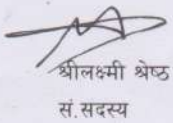 श्रीलक्ष्मी श्रेष्ठ
सं.सदस्य